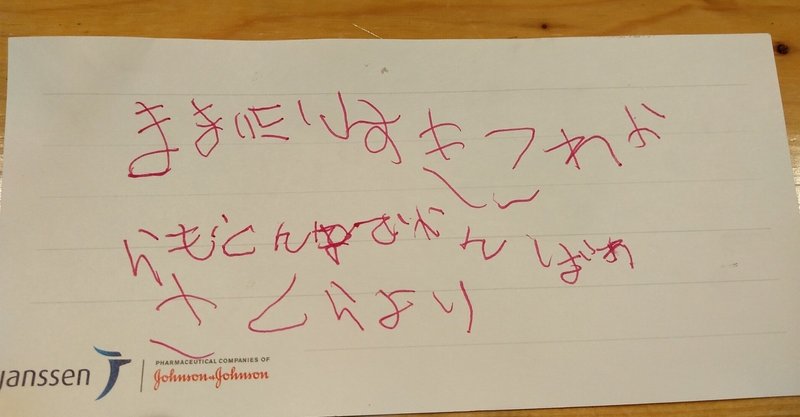 ままだいすきこれか
らも がんばれ
さくらより
janssen
PHARMACEUTICAL COMPANIES OF
Johnson & Johnson